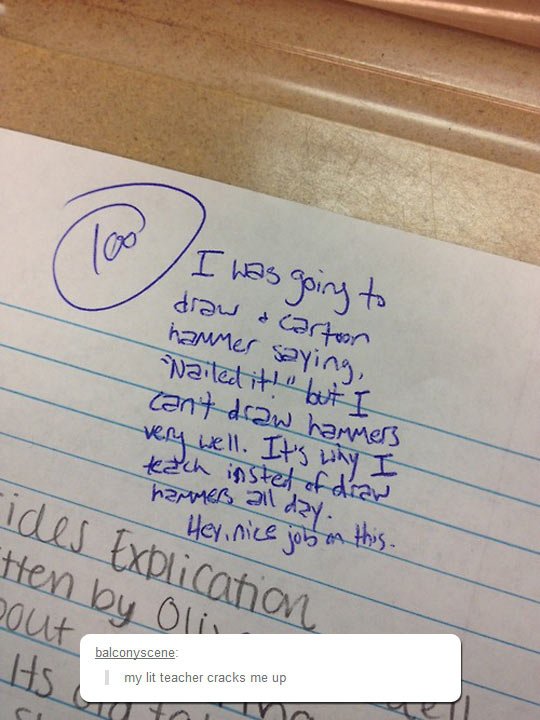 100
I was going to
draw a cartoon
hammer saying,
"Nailed it!" but I
can't draw hammers
very well. It's why I
teach insted of draw
hammers all day.
Hey, nice job on this.
ides Explication
tten by Oli
out
Its
balconyscene:
my lit teacher cracks me up